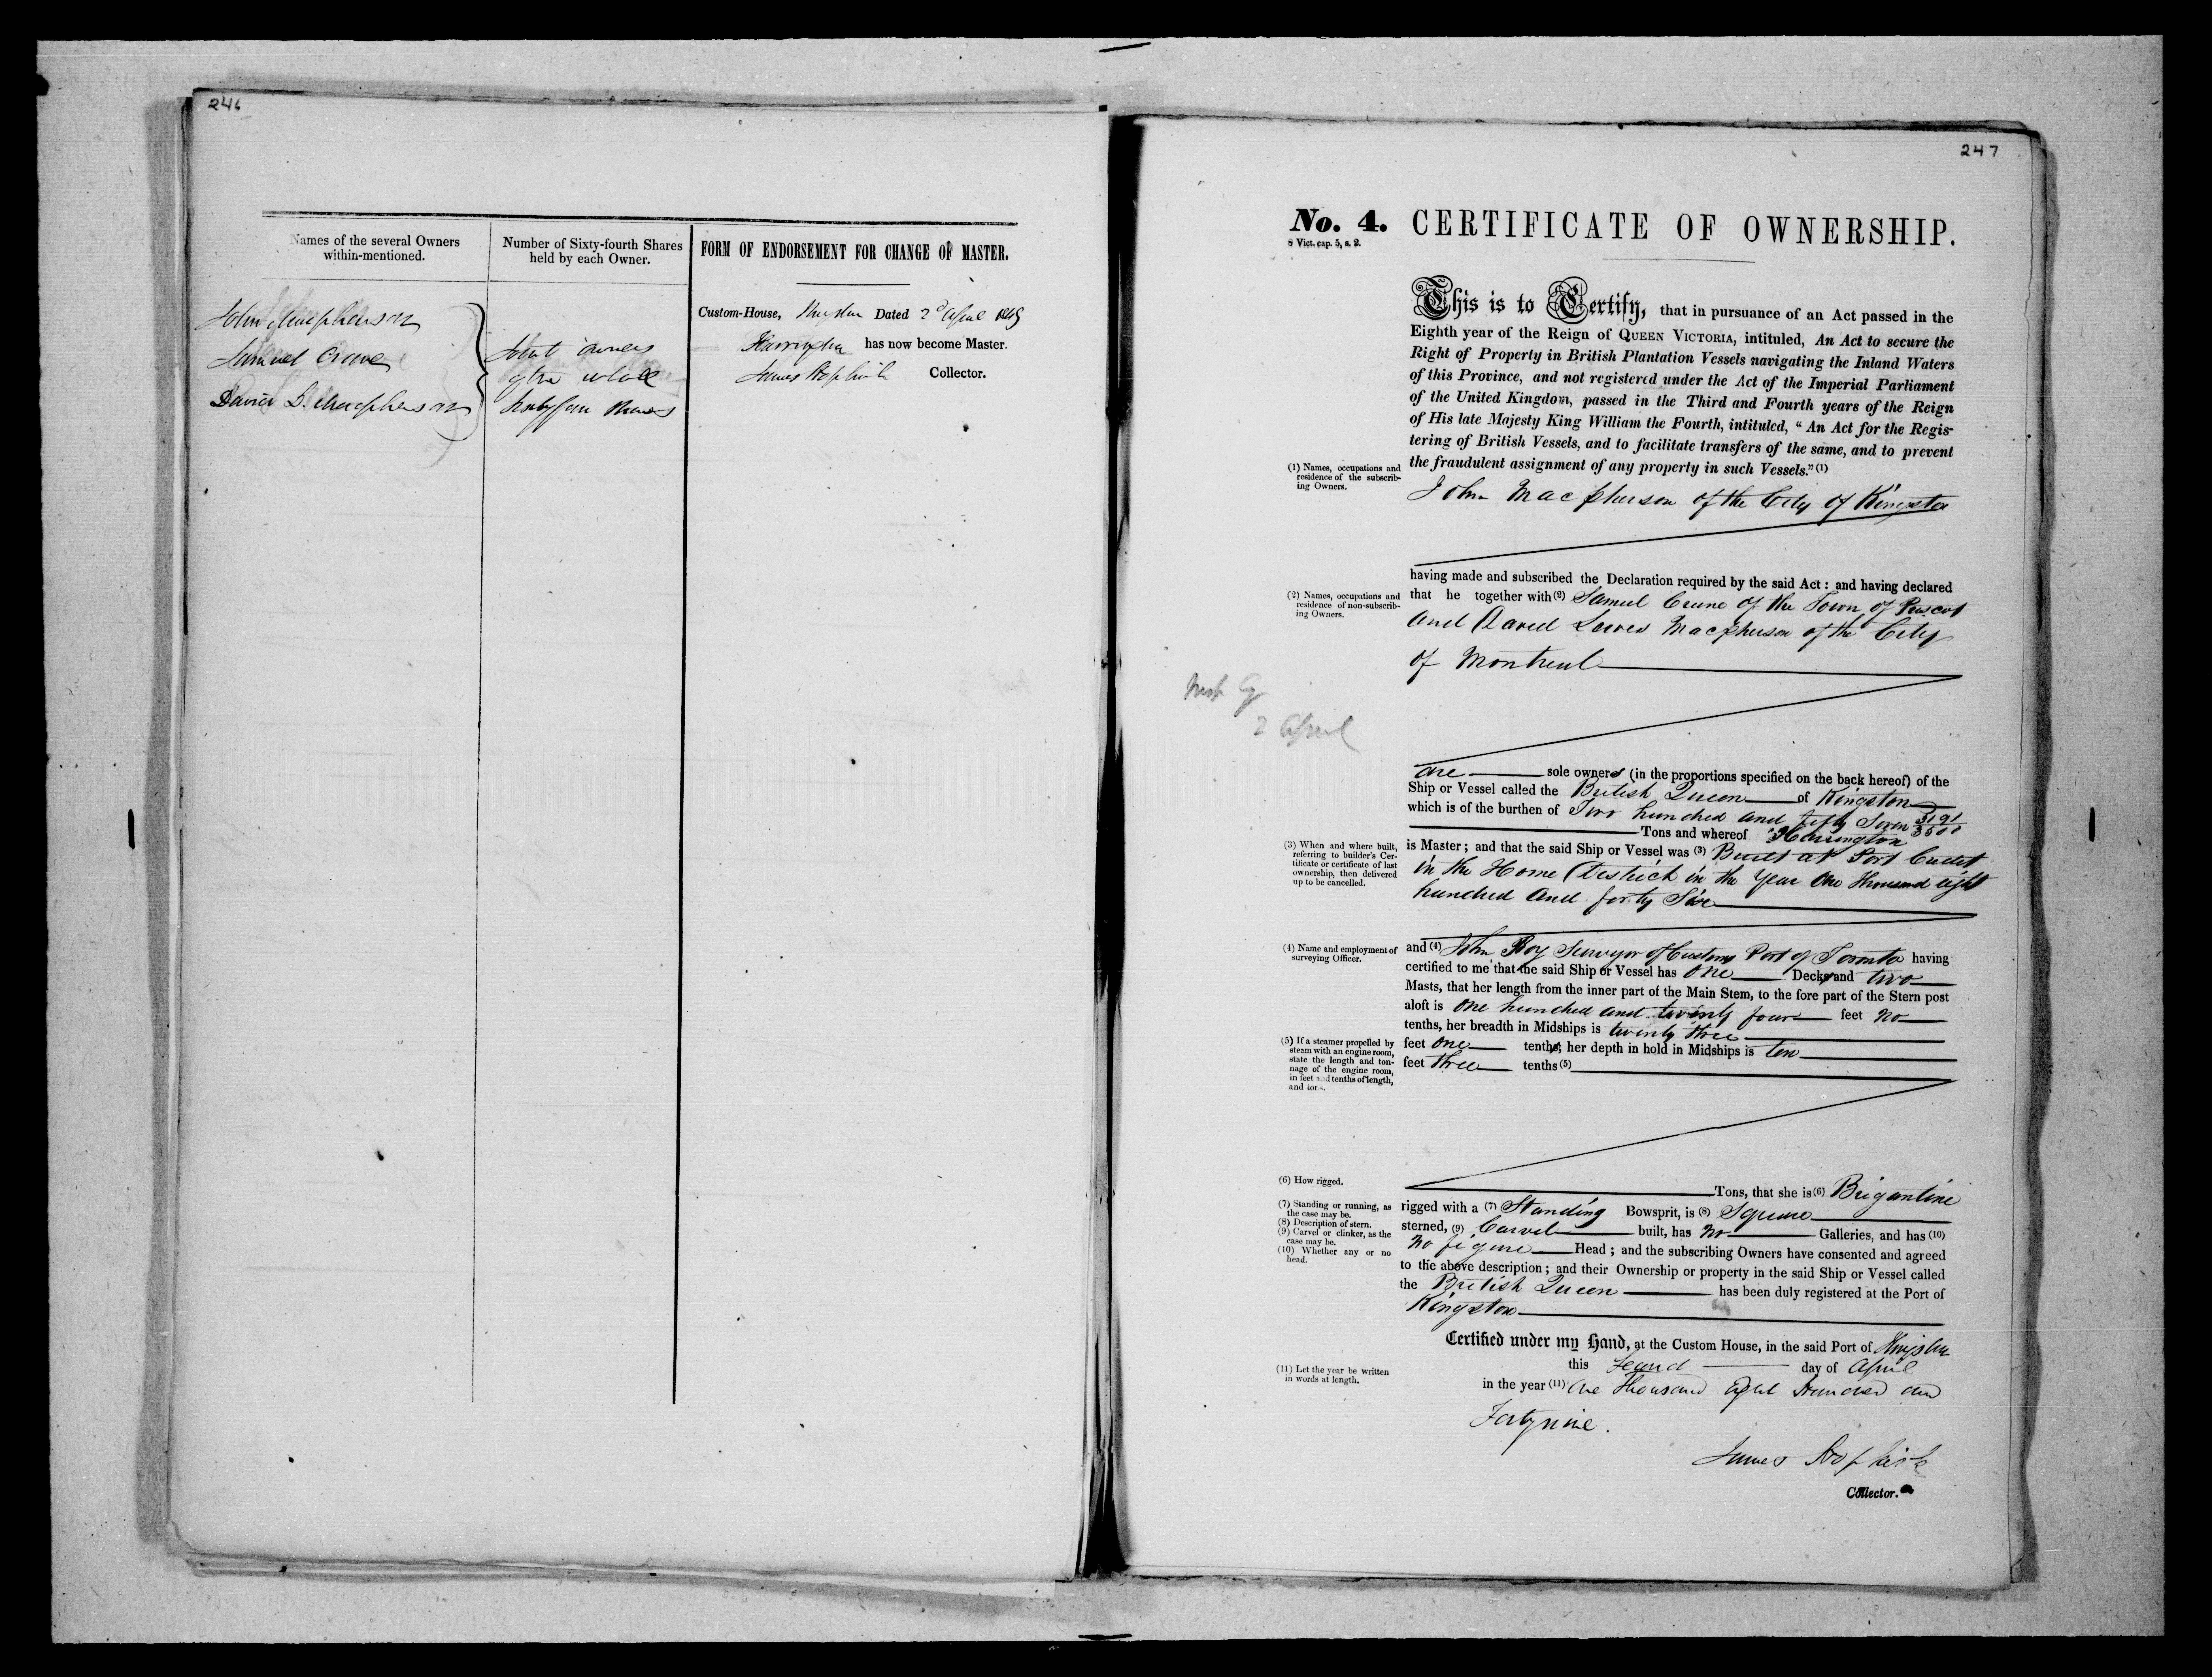 246
Names of the several Owners
within-mentioned.
Number of Sixty-fourth Shares
held by each Owner.
FORM OF ENDORSEMENT FOR CHANGE OF MASTER.
John Macpherson
Samuel Crane
David L. Macpherson
Joint owners
of the whole
Sixty four shares
Custom-House, Kingston Dated 2d April 1849
Harrington has now become Master.
James Hopkirk Collector.
247
No. 4. CERTIFICATE OF OWNERSHIP.
8 Vict. cap. 5, s. 2.
This is to Certify, that in pursuance of an Act passed in the
Eighth year of the Reign of QUEEN VICTORIA, intituled, An Act to secure the
Right of Property in British Plantation Vessels navigating the Inland Waters
of this Province, and not registered under the Act of the Imperial Parliament
of the United Kingdom, passed in the Third and Fourth years of the Reign
of His late Majesty King William the Fourth, intituled, “ An Act for the Regis-
tering of British Vessels, and to facilitate transfers of the same, and to prevent
the fraudulent assignment of any property in such Vessels.” (1)
(1) Names, occupations and
residence of the subscrib-
ing Owners.
John Macpherson of the City of Kingston
having made and subscribed the Declaration required by the said Act : and having declared
(2) Names, occupations and
residence of non-subscrib-
ing Owners.
that he together with (2) Samuel Crane of the Town of Prescot
and David Lewis Macpherson of the City
of Montreal
2 April
are sole owners (in the proportions specified on the back hereof) of the
Ship or Vessel called the British Queen of Kingston
which is of the burthen of Two hundred and fifty Seven 3191/3500
Tons and whereof Harrington
(3) When and where built,
referring to builder's Cer-
tificate or certificate of last
ownership, then delivered
up to be cancelled.
is Master ; and that the said Ship or Vessel was (3) Built at Port Credit
in the Home District in the Year One thousand eight
hundred and forty Six
(4) Name and employment of
surveying Officer.
and (4) John Roy Surveyor of Customs Port of Toronto having
certified to me that the said Ship or Vessel has one Decks and two
Masts, that her length from the inner part of the Main Stem, to the fore part of the Stern post
aloft is One hundred and twenty four feet no
tenths, her breadth in Midships is twenty three
(5) If a steamer propelled by
steam with an engine room,
state the length and ton-
nage of the engine room,
in feet and tenths of length,
and tons.
feet one tenths, her depth in hold in Midships is ten
feet three tenths (5)
(6) How rigged.
Tons, that she is (6) Brigantine
(7) Standing or running, as
the case may be.
(8) Description of stern.
(9) Carvel or clinker, as the
case may be.
(10) Whether any or no
head.
rigged with a (7) Standing Bowsprit, is (8) Square
sterned, (9) Carvel built, has no Galleries, and has (10)
no figure Head ; and the subscribing Owners have consented and agreed
to the above description ; and their Ownership or property in the said Ship or Vessel called
the British Queen has been duly registered at the Port of
Kingston
Certified under my Hand, at the Custom House, in the said Port of Kingston
this Second day of April
(11) Let the year be written
in words at length.
in the year (11) One Thousand Eight Hundred and
Forty nine.
James Hopkirk
Collector.